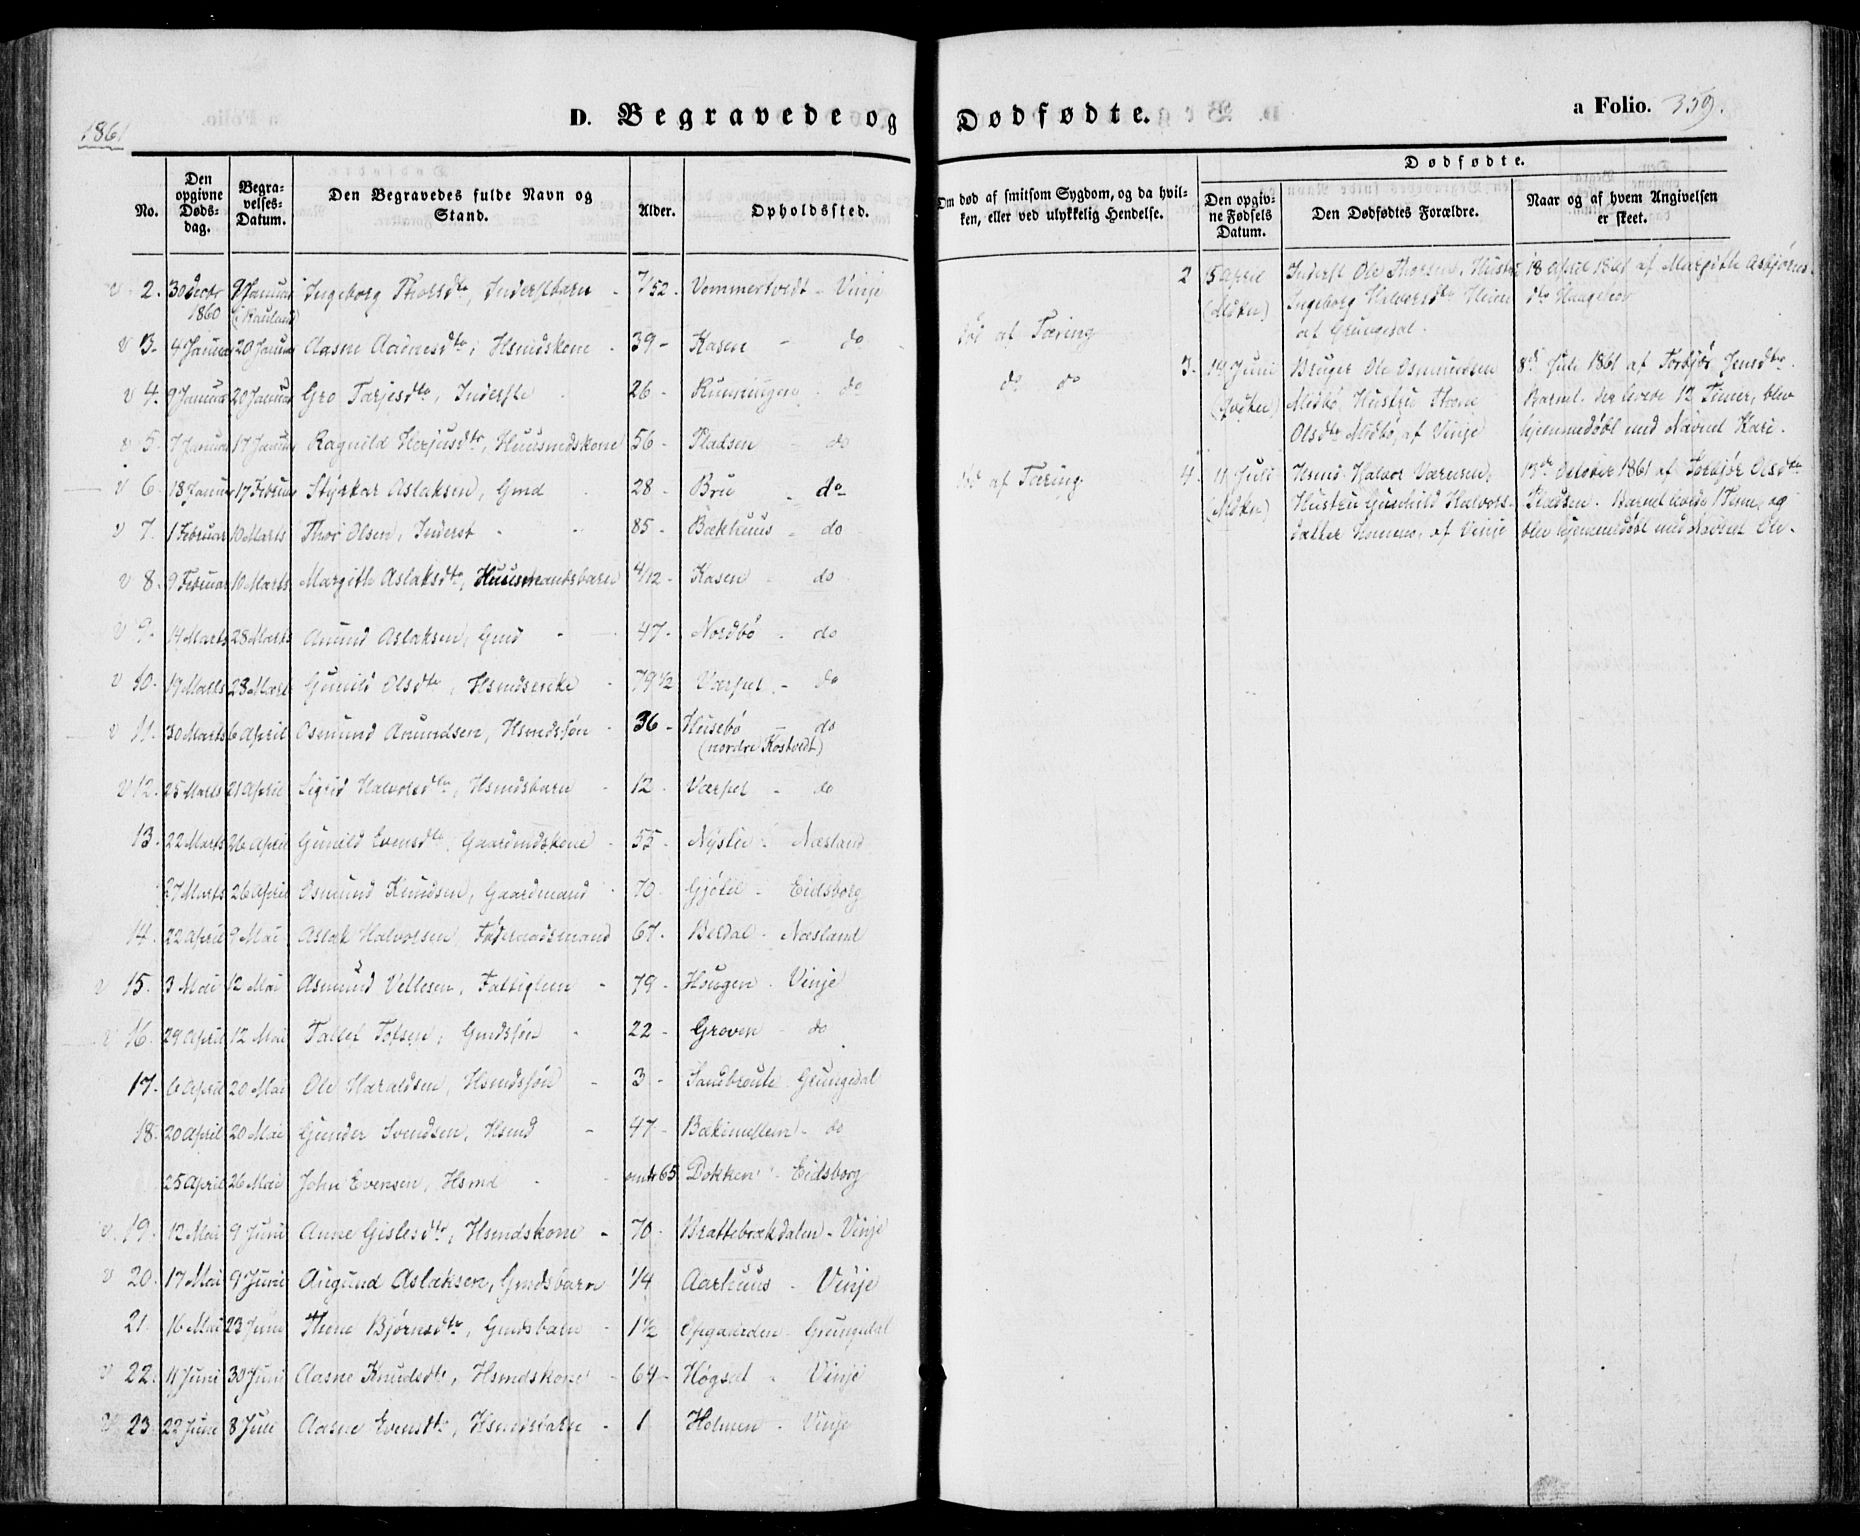 1861
D. Begravede og Dødfødte.
a Folio. 359.
No.
Den opgivne Døds-dag.
Begra-velses-Datum.
Den Begravedes fulde Navn og Stand.
Alder.
Opholdssted.
Om død af smitsom Sygdom, og da hvil-ken, eller ved ulykkelig Hendelse.
Dødfødte.
Den opgiv-ne Fødsels Datum.
Den Dødfødtes Forældre.
Naar og af hvem Angivelsen er skeet.
v 2. 30 Decbr 1860 9 Januar (i Rauland) Ingeborg Thorsdtr, Inderstbarn - 7/52 - Vemmertvedt - Vinje
v 3. 4 Januar 20 Januar Aasne Aadnesdtr, Hsmdskone - 39 - Kasen - do død af Tæring
v 4. 9 Januar 20 Januar Gro Tarjesdtr, Inderste - 26 - do do do
v 5. 7 Januar 17 Januar Ragnild Herjusdtr, Huusmdskone 56 - Pladsen - do
v 6. 18 Januar 17 Februar Styrkar Aslaksen, Gmd - 28 - Bru - do død af Tæring
v 7. 1 Februar 10 Marts Thor Olsen, Inderst - 85 - Bækhuus - do
v 8. 9 Februar 10 Marts Margith Aslaksdtr, Huusmandsbarn 4/12 - Kasen - do
v 9. 14 Marts 28 Marts Anund Aslaksen, Gmd - 47 - Nordbø - do
v 10. 19 Marts 28 Marts Gunild Olsdtr, Hsmdsenke - 79 1/2 Værpet - do
v 11. 30 Marts 6 April Osmund Anundsen, Hsmdssøn - 36 - Husebø - do
(nordre Kostvedt)
v 12. 25 Marts 21 April Sigrid Halvorsdtr, Hsmdsbarn - 12 - Værpet - do
13. 22 Marts 26 April Gunild Evensdtr, Gaardmdskone - 55 - Nystu - Næsland
27 Marts 26 April Osmund Knudsen, Gaardmand - 70 - Gjøtil - Eidsborg
14. 22 April 9 Mai Aslak Halvorsen, Føderaadsmand 67 - Berdal - Næsland
v 15. 3 Mai 12 Mai Asmund Vellesen, Fattiglem - 79 - Haugen - Vinje
v 16. 29 April 12 Mai Tallef Tofsen, Gmdssøn - 22 - Groven - do
17. 6 April 20 Mai Ole Haraldsen, Hsmdssøn - 3 - Sandbroute - Grungedal
18. 20 April 20 Mai Gunder Svendsen, Hsmd - 47 - - do
25 April 26 Mai John Evensen, Hsmd - omtr 65 Dokken - Eidsborg
v. 19. 12 Mai 9 Juni Anne Gislesdtr, Hsmdskone - 70 - Brattebrækdalen - Vinje
v 20. 17 Mai 9 Juni Augund Aslaksen, Gmdsbarn 1/4 Aarhuus - Vinje
21. 16 Mai 23 Juni Thone Bjørnsdtr, Gmdsbarn - 1 1/2 Opgaarden - Grungedal
v 22. 11 Juni 30 Juni Aasne Knudsdtr, Hsmdskone - 64 - Høgset - Vinje
v 23. 22 Juni 8 Juli Aasne Evensdtr, Hsmdsbarn - 1 Holmen - Vinje
2 5 April Inderst Ole Thorsen, Hustru 18 April 1861 af Margith Asbjørns-
Ingeborg Halvorsdtr dtr Haugehov
af Grungedal.
3. 14 Juni Bruger Ole Osmundsen 8de Juli 1861 af Torbjør Jensdtr.
Midbø, Hustru Thone Barnet, der levede 12 Timer, blev
Olsdtr Midbø, af Vinje hjemmedøbt med Navnet Kari.
4. 11 Juli Hsmd Halvor Værensen, 13de October 1861 af Torbjør Olsdtr
Hustru Gunhild Halvors- Pladsen. Barnet levede 1 Time, og
datter, af Vinje blev hjemmedøbt med Navnet Ole.